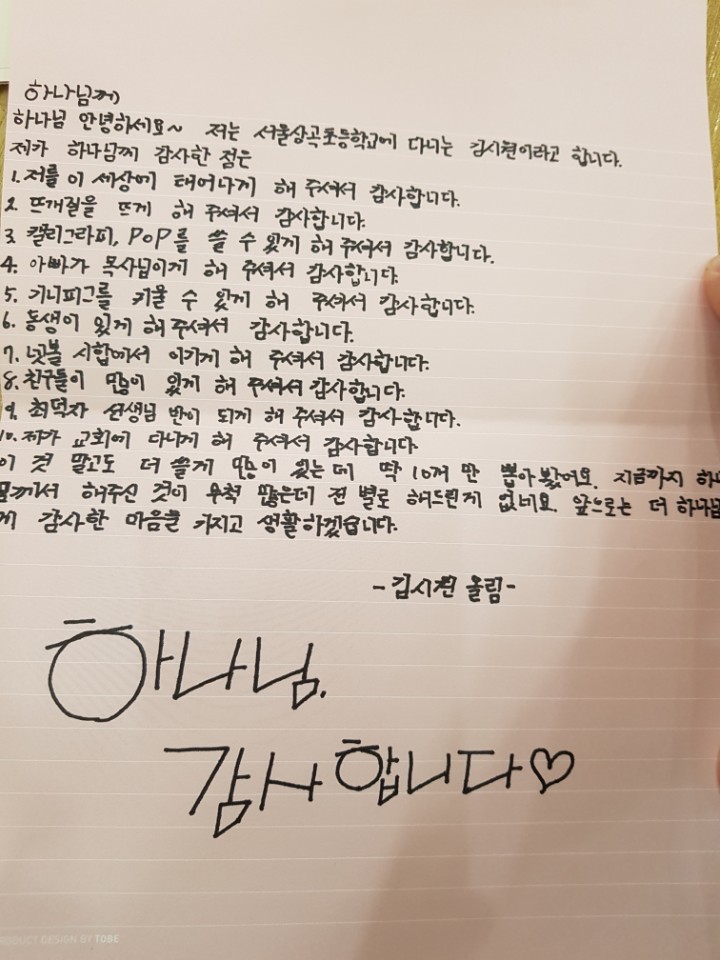 하나님께)
하나님 안녕하세요~ 저는 서울상곡초등학교에 다니는 김시현이라고 합니다.
제가 하나님께 감사한 점은
1. 저를 이 세상에 태어나게 해 주셔서 감사합니다.
2. 뜨개질을 뜨게 해 주셔서 감사합니다.
3. 캘리그라피, POP를 쓸 수 있게 해 주셔서 감사합니다.
4. 아빠가 목사님이게 해 주셔서 감사합니다.
5. 기니피그를 키울 수 있게 해 주셔서 감사합니다.
6. 동생이 있게 해 주셔서 감사합니다.
7. 넷볼 시합에서 이기게 해 주셔서 감사합니다.
8. 친구들이 많이 있게 해 주셔서 감사합니다.
9. 최덕자 선생님 반이 되게 해 주셔서 감사합니다.
10. 제가 교회에 다니게 해 주셔서 감사합니다
이 것 말고도 더 쓸게 많이 있는 데 딱 10개 만 뽑아봤어요. 지금까지 하나
님께서 해주신 것이 무척 많은데 전 별로 해드린게 없네요. 앞으로는 더 하나님
께 감사한 마음을 가지고 생활하겠습니다.
-김시현 올림-
하나님.
감사합니다♡
PRODUCT DESIGN BY TOBE